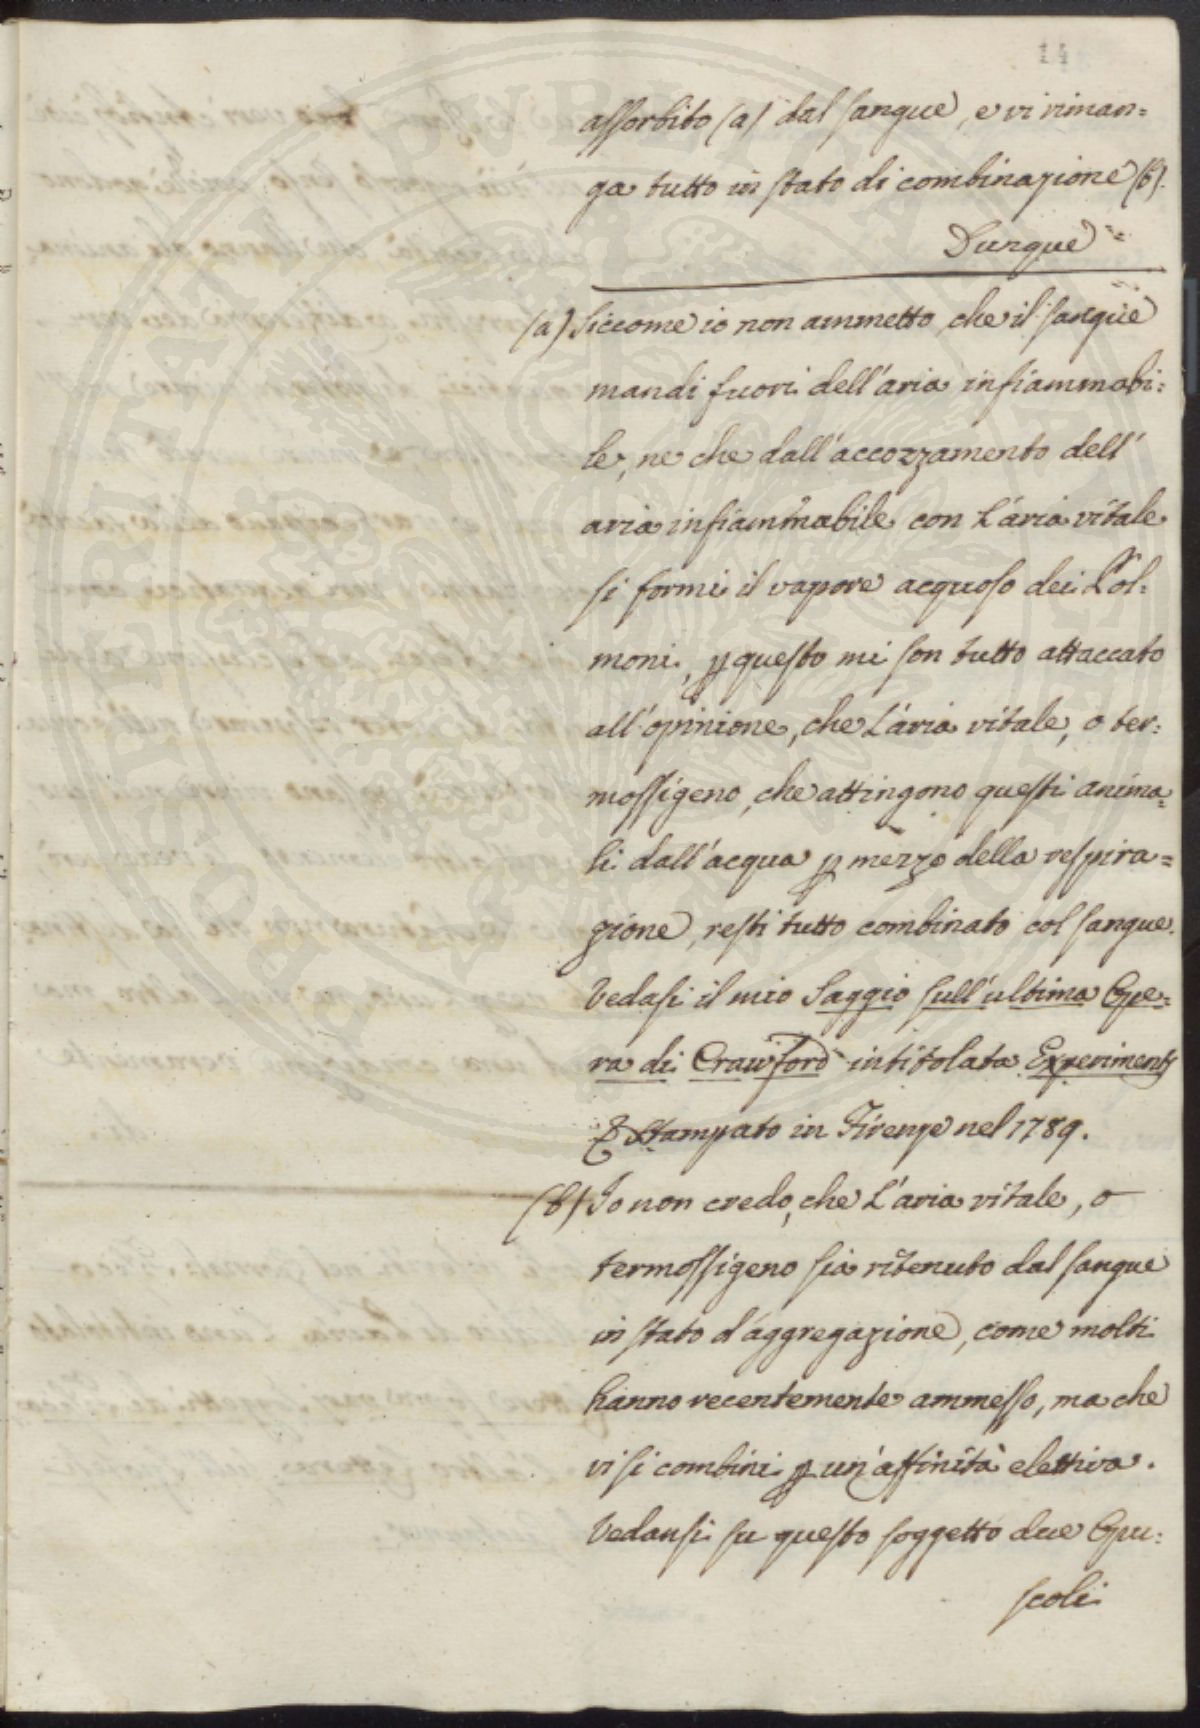 14
assorbito (a) dal sangue, e vi riman=
ga tutto in stato di combinazione (b).
Dunque
(a) Siccome io non ammetto che il sangue
mandi fuori dell'aria infiammabi=
le, ne che dall'accozzamento dell'
aria infiammabile con l'aria vitale
si formi il vapore acquoso dei Pol=
moni, p questo mi son tutto attaccato
all'opinione, che l'aria vitale, o ter=
mossigeno, che attingono questi anima=
li dall'acqua p mezzo della respira=
zione, resti tutto combinato col sangue.
Vedasi il mio Saggio sull'ultima Ope=
ra di Crawford intitolata Experiments
& Stampato in Firenze nel 1789.
(b) Io non credo, che l'aria vitale, o
termossigeno sia ritenuto dal sangue
in stato d'aggregazione, come molti
hanno recentemente ammesso, ma che
vi si combini p un'affinità elettiva.
Vedansi su questo soggetto due Opu=
scoli